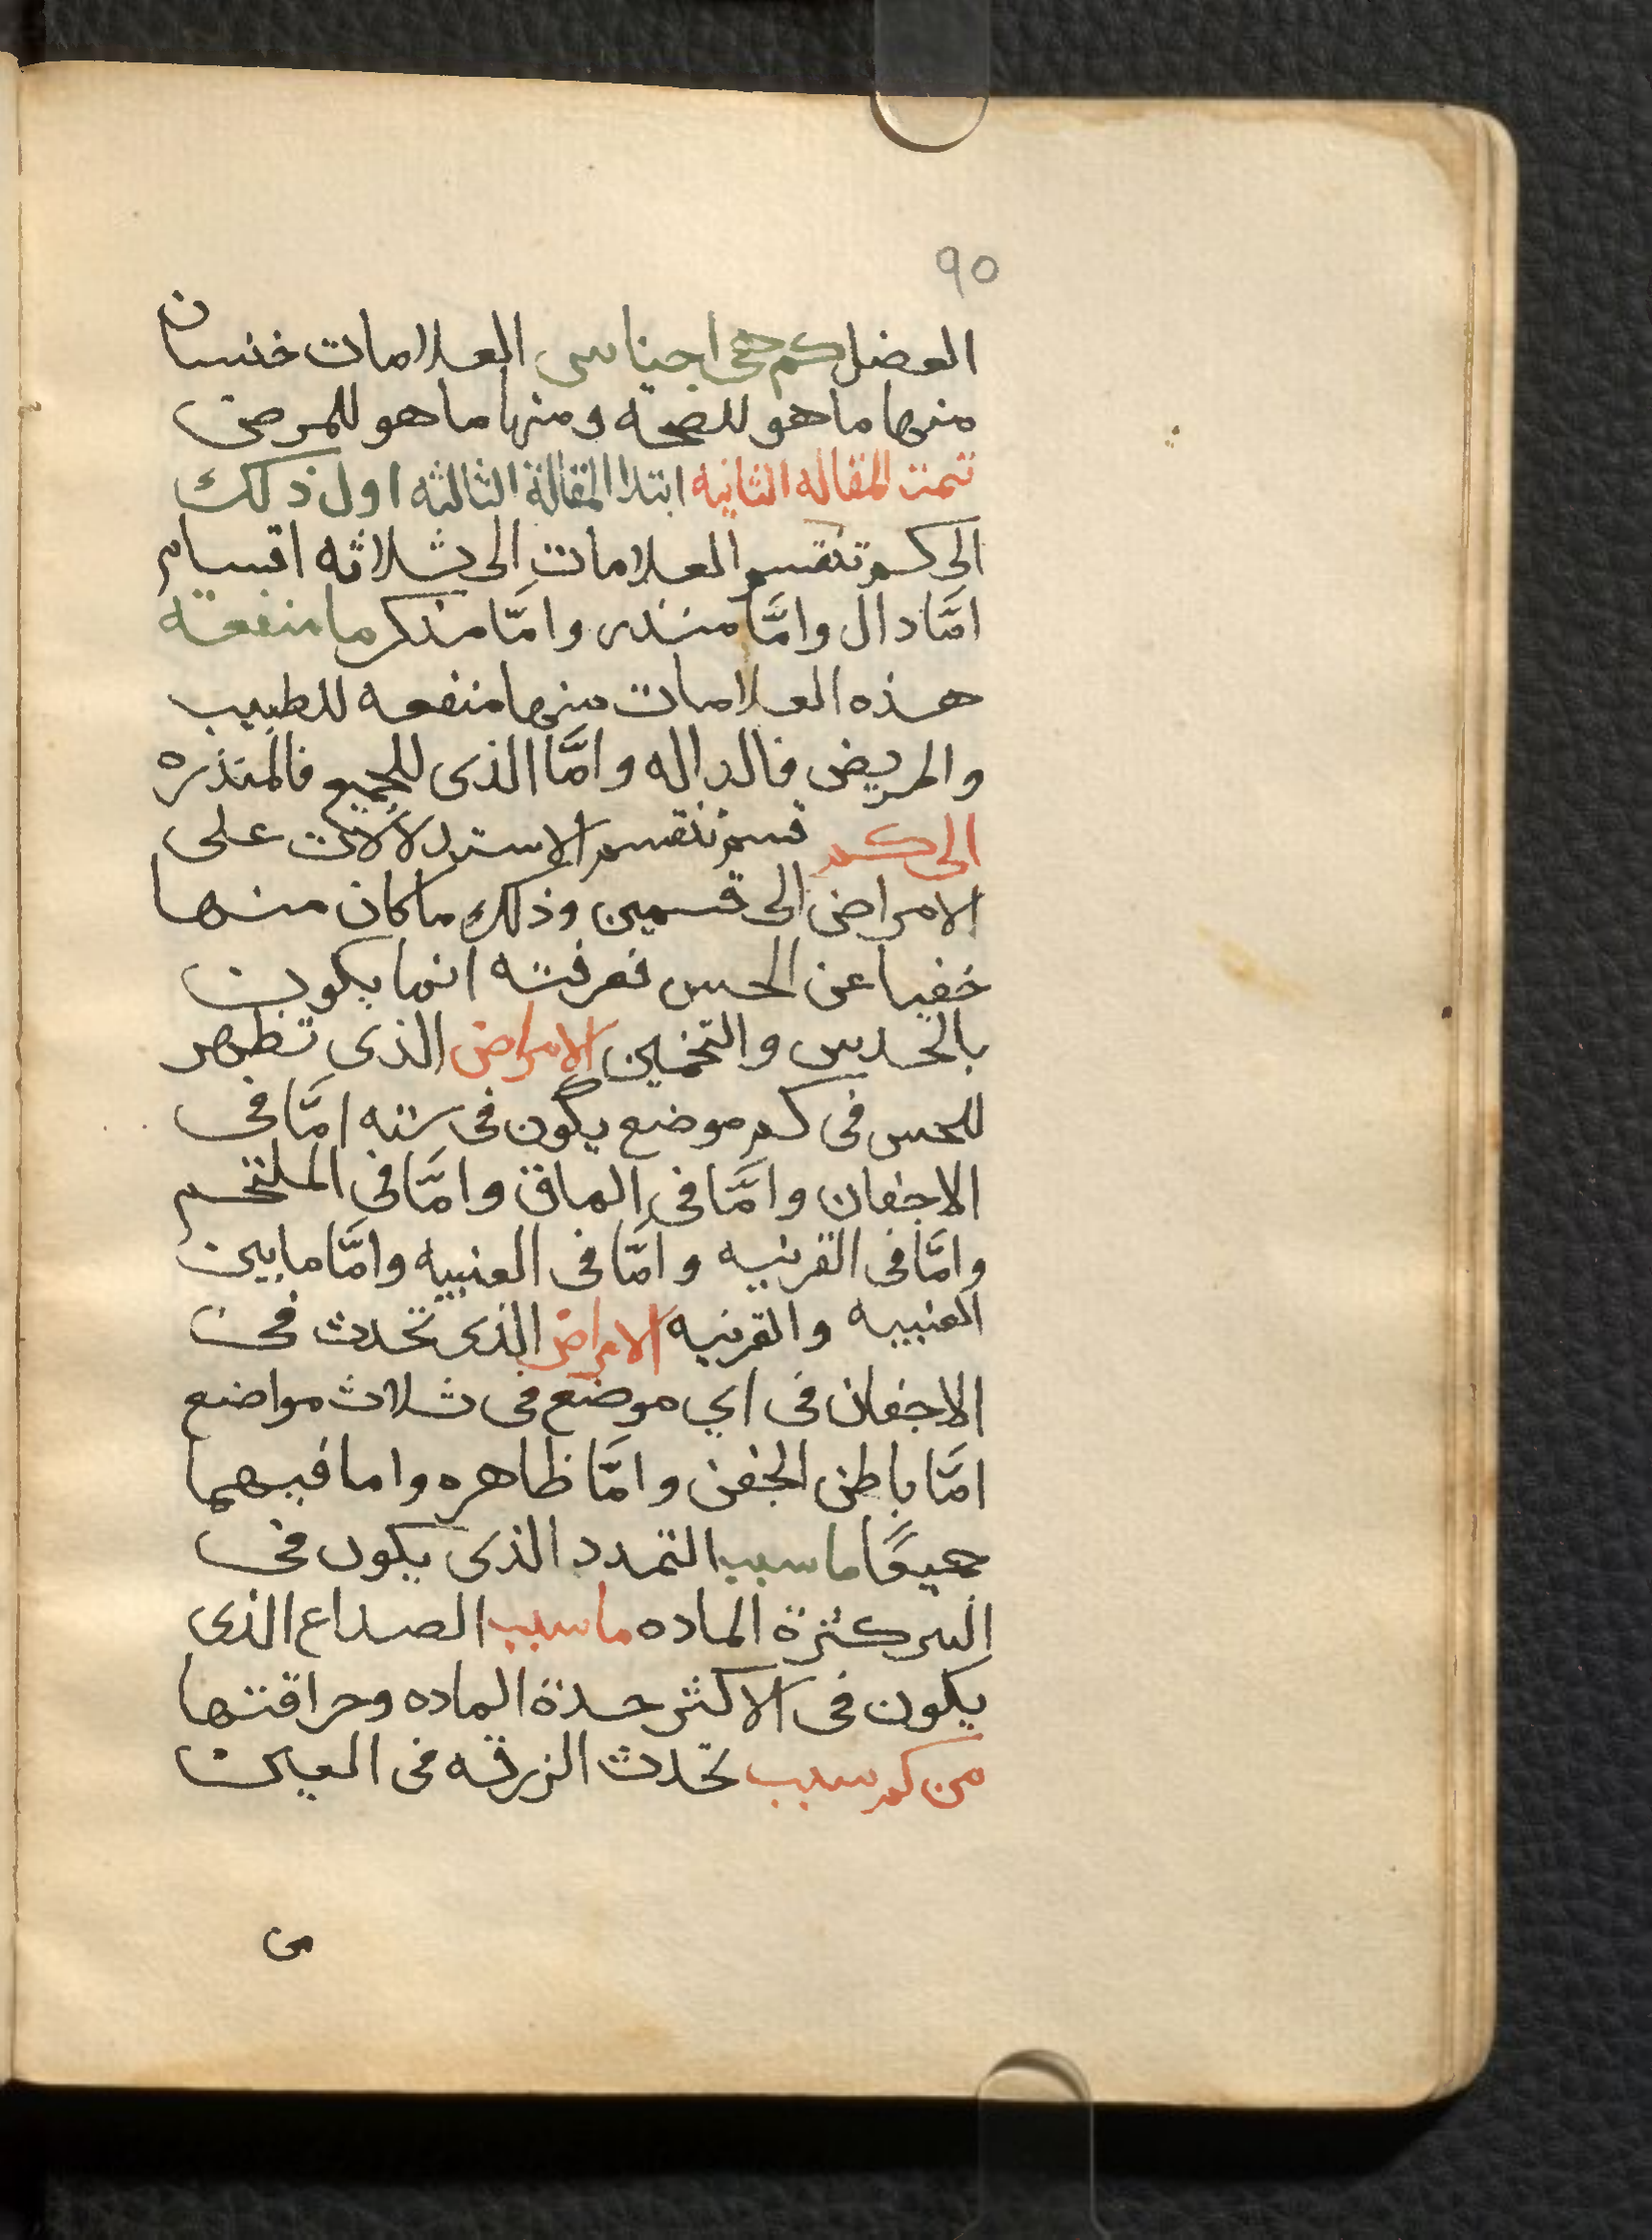 ٩٥
العضل كم هى اجناس العلامات خنسان
منها ما هو للصحه ومنها ما هو للمرض
تمت المقاله الثانيه ابتدا المقالة الثالثه اول ذلك
الى كم تنقسم العلامات الى ثلاثه اقسام
امَّا دال وامَّا منذر وامَّا مذكر ما منفعة
هذه العلامات منها منفعه للطبيب
والمريض فالداله وامَّا الذى للجميع فالمنذره
الى كم قسم تنقسم الاستدلالات على
الامراض الى قسمين وذلك ما كان منها
خفيا عن الحس فعرفته انما يكون
بالحدس والتخمين الامراض الذى تظهر
للحس فى كم موضع يكون فى سته امَّا فى
الاجفان وامَّا فى الماق وامَّا فى الملتحم
وامَّا فى القرنيه وامَّا فى العنبيه وامَّا ما بين
العنبيه والقرنيه الامراض الذى تحدث فى
الاجفان فى اي موضع فى ثلاث مواضع
امَّا باطن الجفن وامَّا ظاهره واما فيهما
جميعًا ما سبب التمدد الذى يكون فى
كثرة الماده ما سبب الصداع الذى
يكون فى الاكثر حدة الماده وحراقتها
من كم سبب تحدث الزرقه فى العين
من